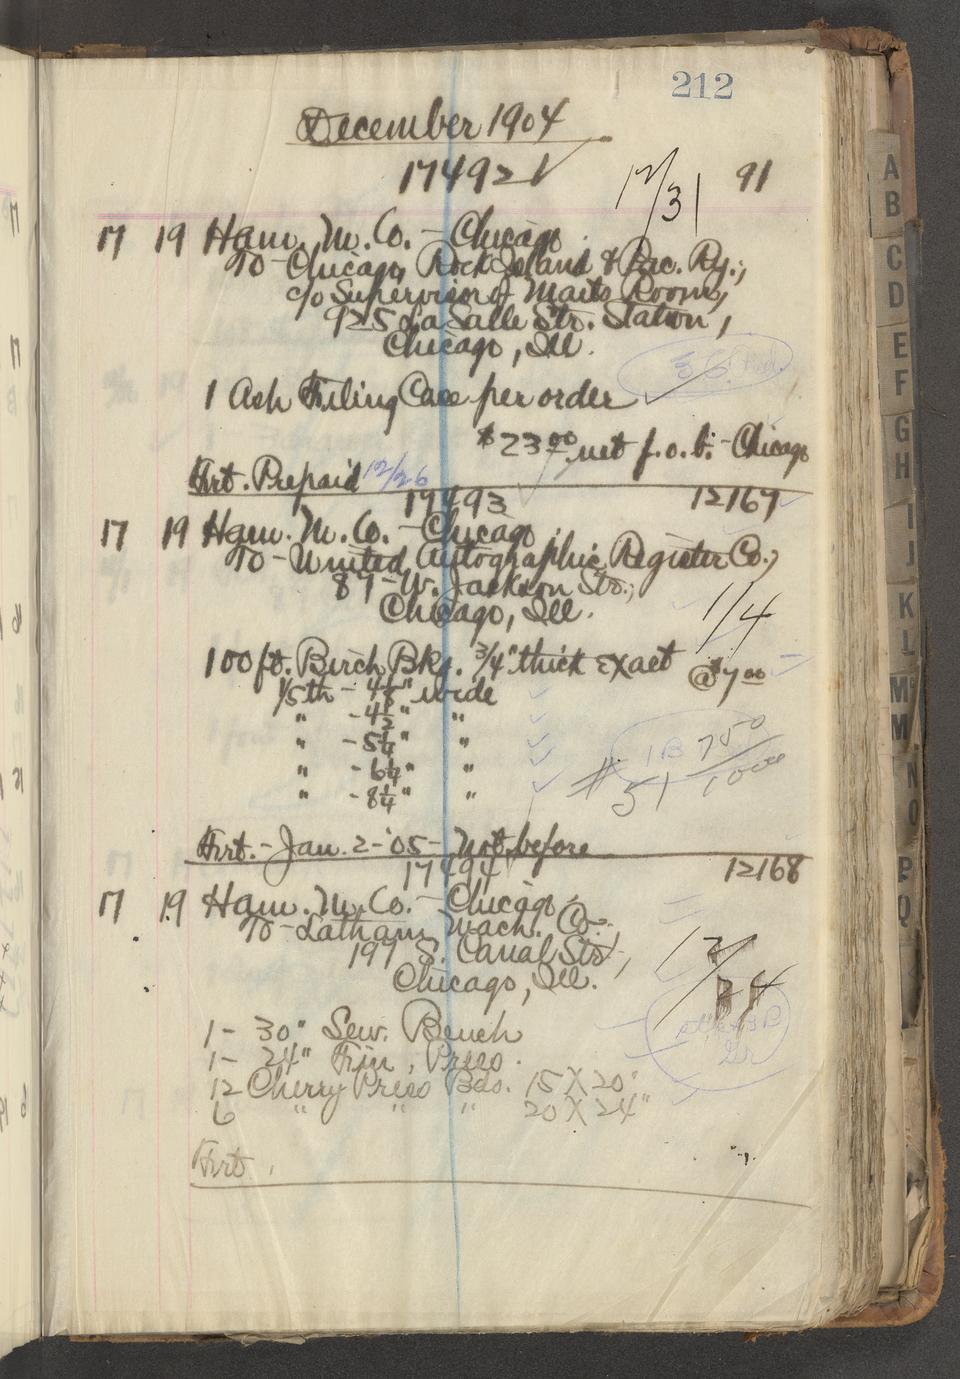 212
December 1904
17492 √ 12/31 91
17 19 Ham. M. Co. - Chicago
To - Chicago, Rock Island & Pac. Ry.,
c/o Supervisor of Mails Room,
925 La Salle Str. Station,
Chicago, Ill.
36
1 Ash Filing Case per order
$23.00 net f.o.b. - Chicago
Frt. Prepaid 12/26
17493 12167
17 19 Ham. M. Co. - Chicago
To - United Autographic Register Co.,
87 - W. Jackson Str.,
Chicago, Ill.
1/4
100 ft. Birch Bkg. 3/4" thick exact @ $7.00
1/5th - 4 1/8" wide
" - 4 1/2" "
" - 5 1/4" "
" - 6 1/4" "
" - 8 1/4" "
1B 750
# 51 1000
Frt. - Jan. 2 - '05 - Not before
17494 √ 12168
17 19 Ham. M. Co. - Chicago
To - Latham Mach. Co.,
197 S. Canal Str.,
Chicago, Ill.
12/24
1 - 30" Sew. Bench
1 - 24" Fin. Press.
12 Cherry Press Bds. 15 X 20"
6 " " " 20 X 24"
Frt.
A
B
C
D
E
F
G
H
I
J
K
L
M
M
N
O
P
Q